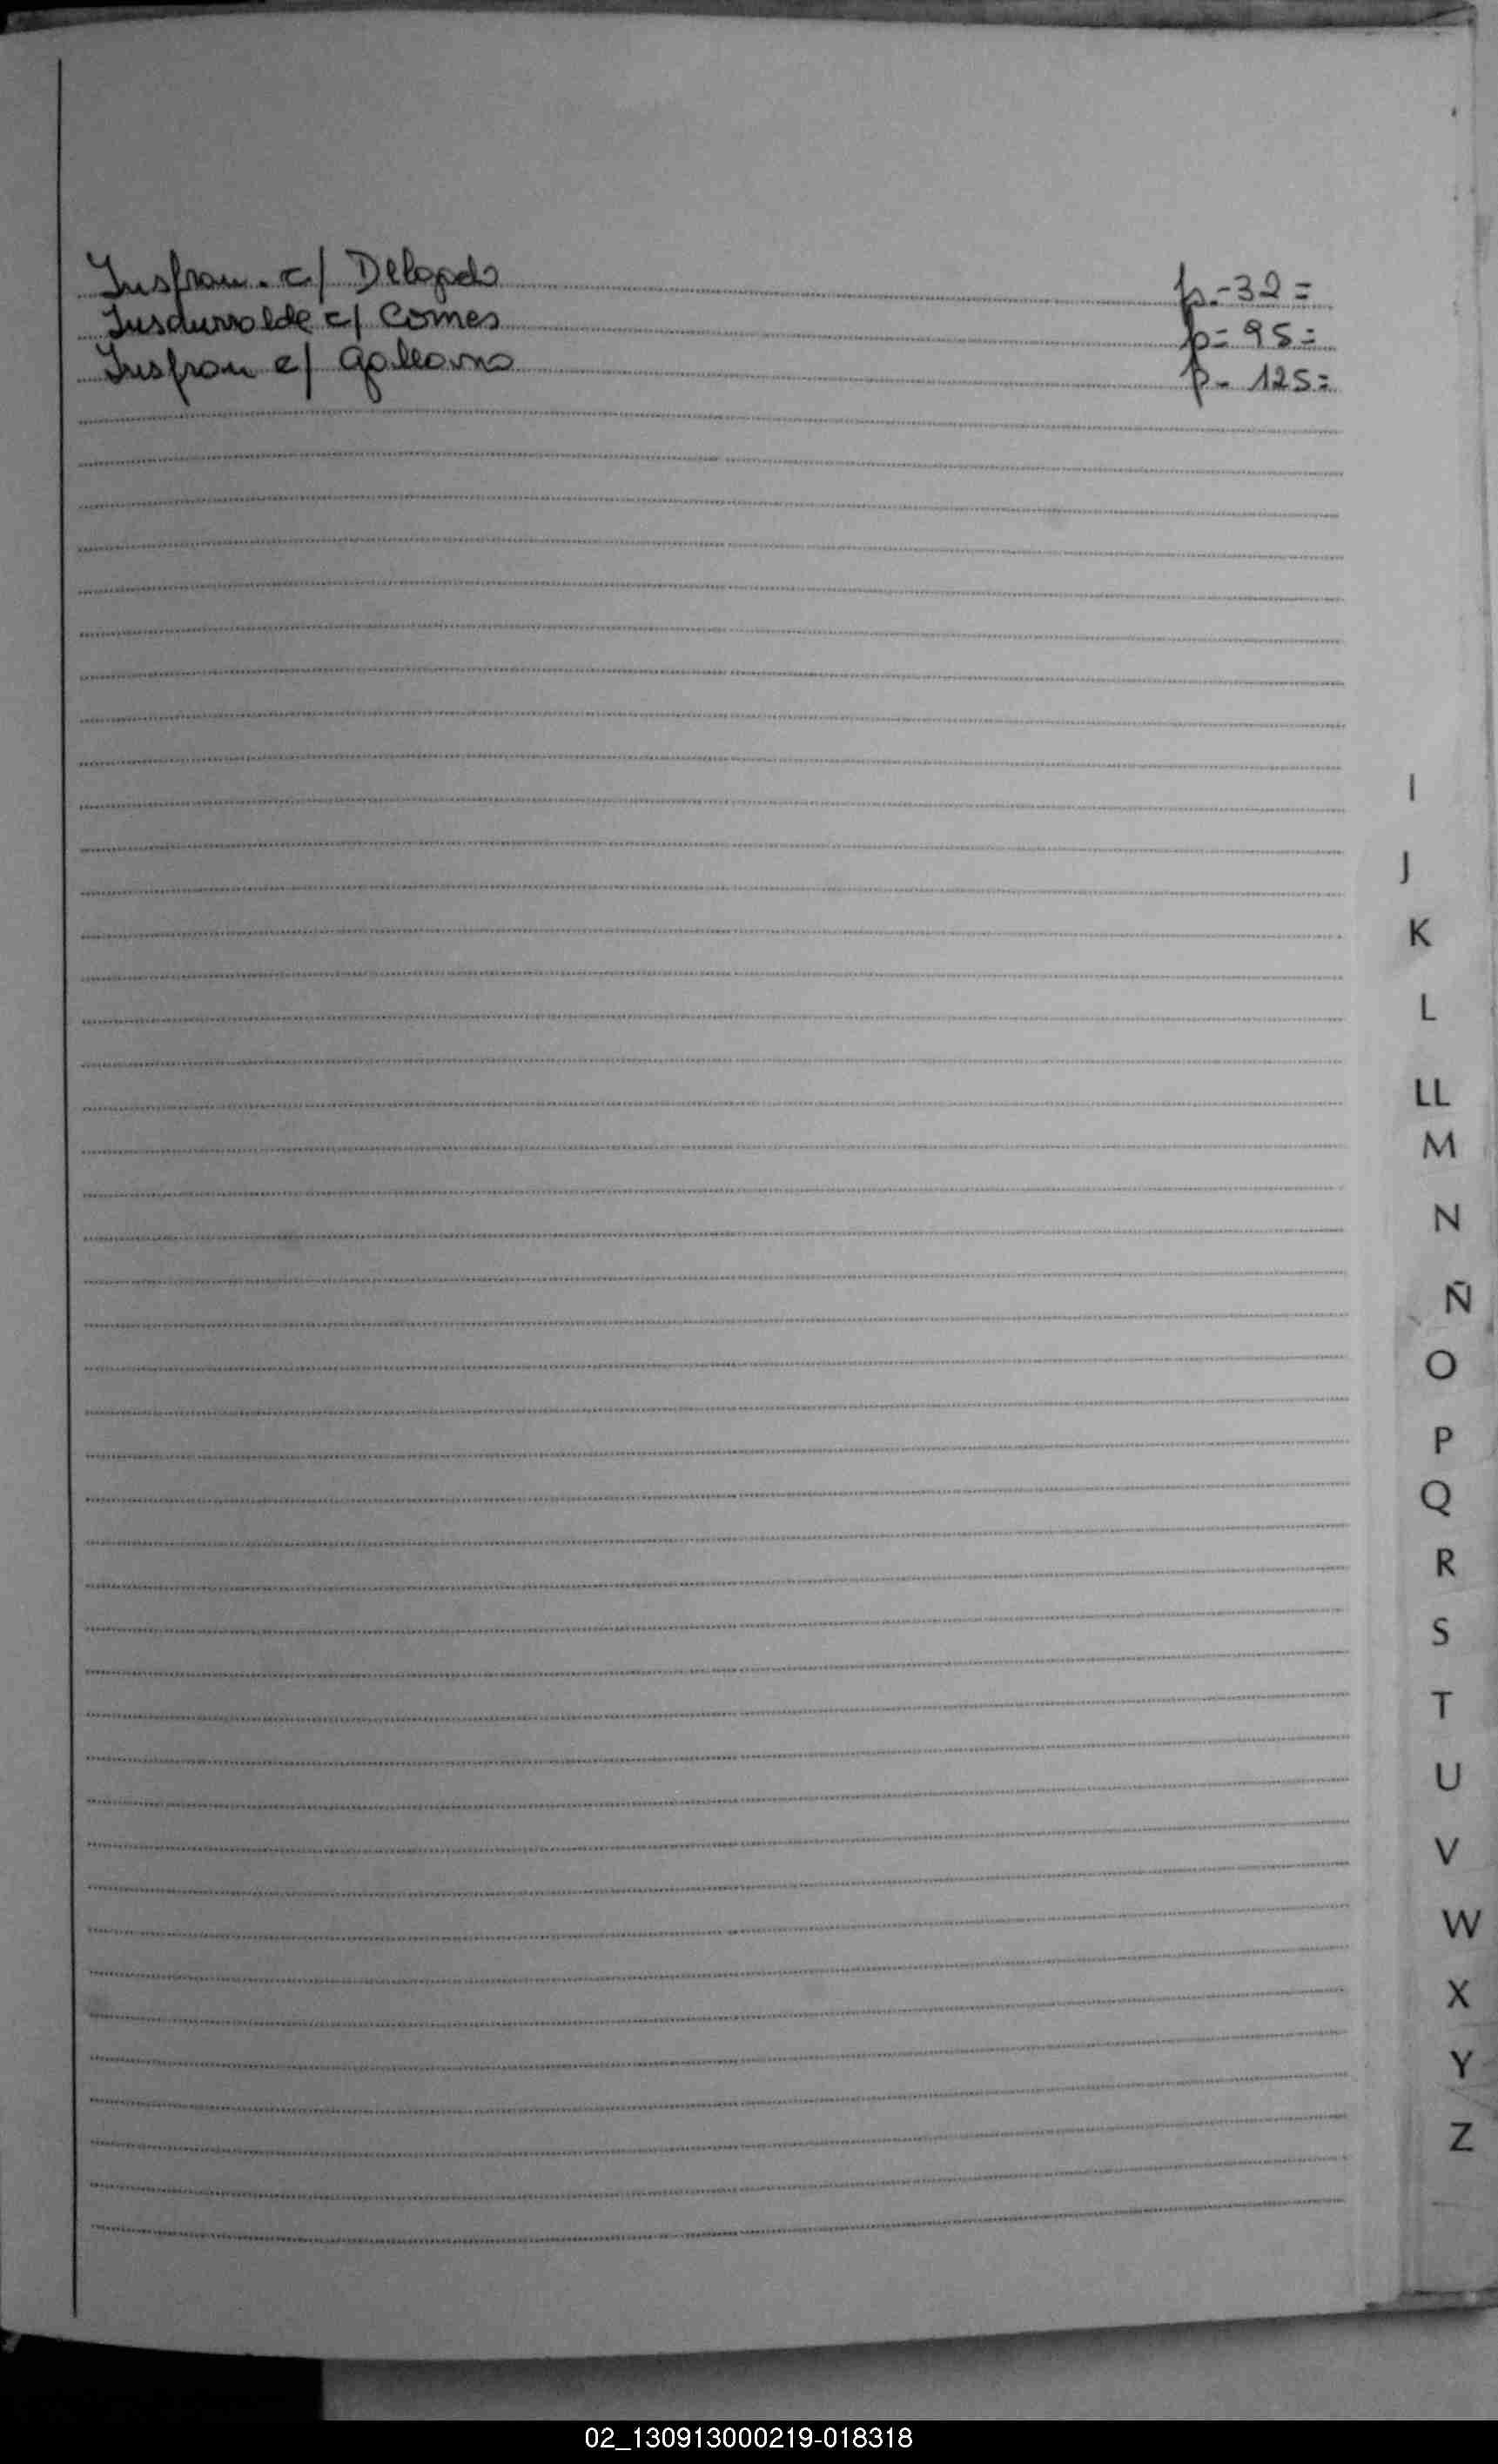 Insfran. c/ Delgado p.-32=
Insaurralde c/ Comes p= 95=
Insfran c/ Galeano p- 125=
I
J
K
L
LL
M
N
Ñ
O
P
Q
R
S
T
U
V
W
X
Y
Z
02_130913000219-018318